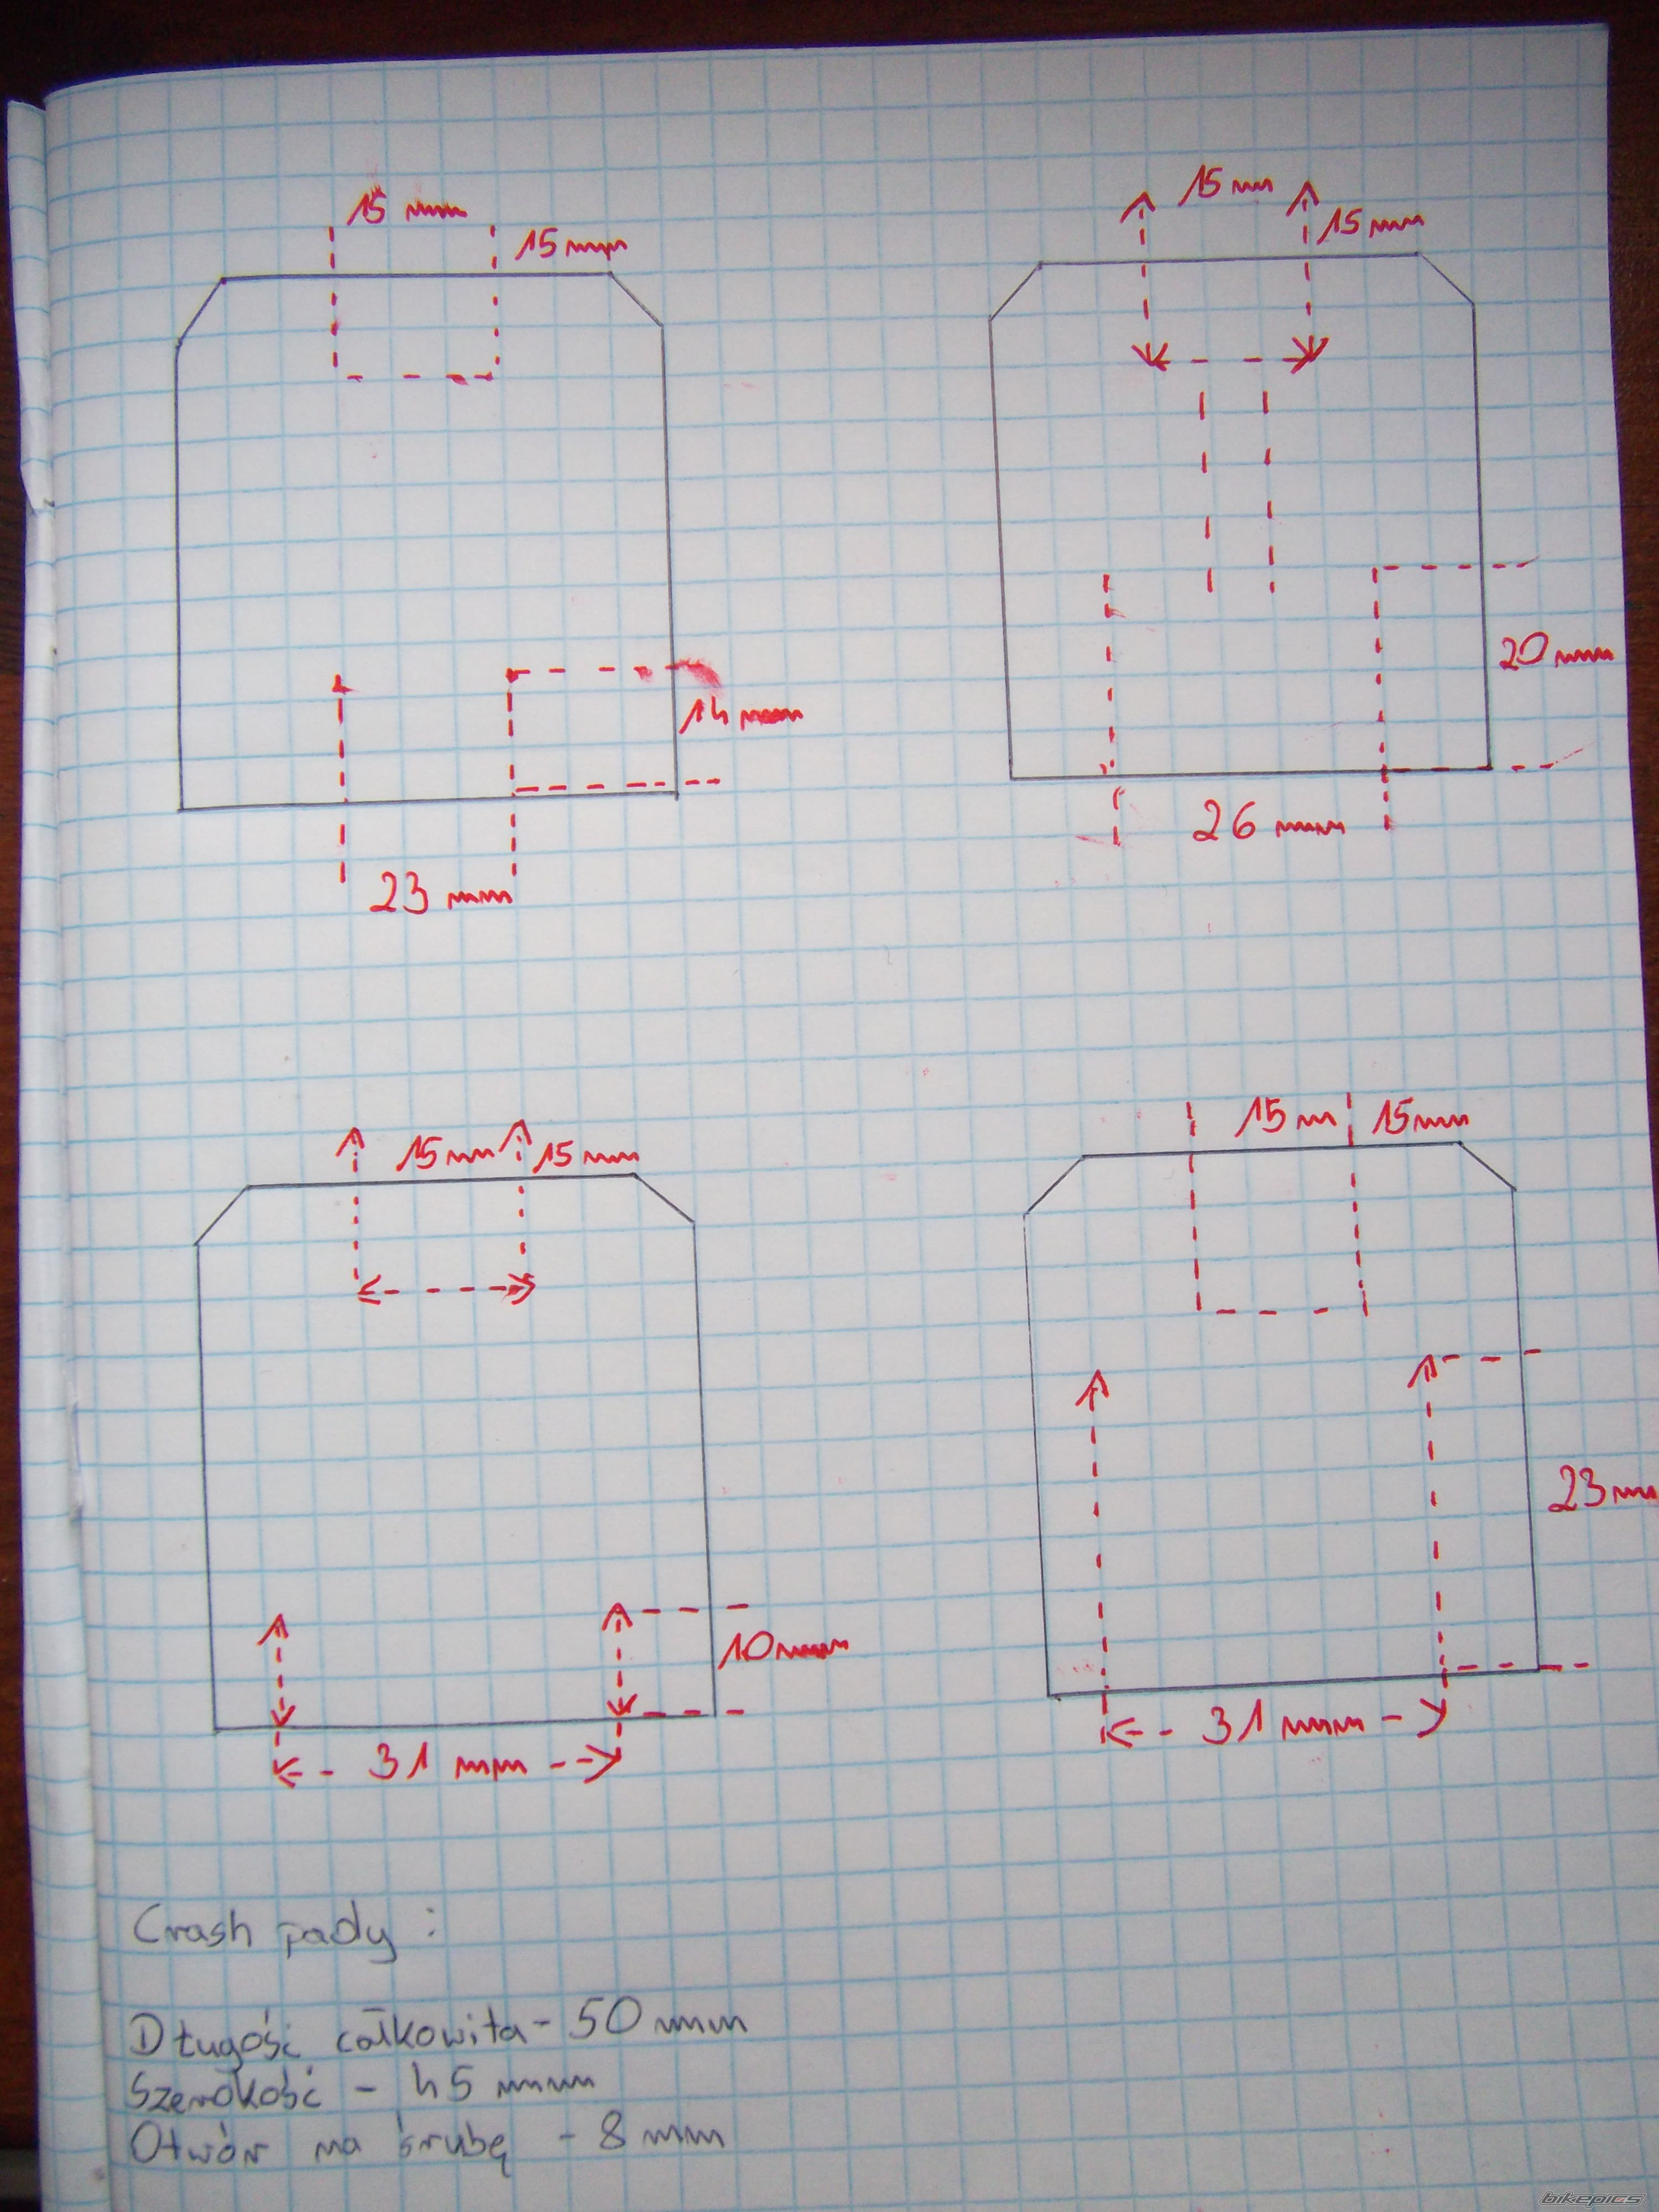 15 mm
15 mm
14 mm
23 mm
15 mm
15 mm
20 mm
26 mm
15 mm
15 mm
10 mm
31 mm
15 m
15 mm
23 mm
31 mm
Crash pady :
Długość całkowita - 50 mm
Szerokość - 45 mm
Otwór na śrubę - 8 mm
bikepics